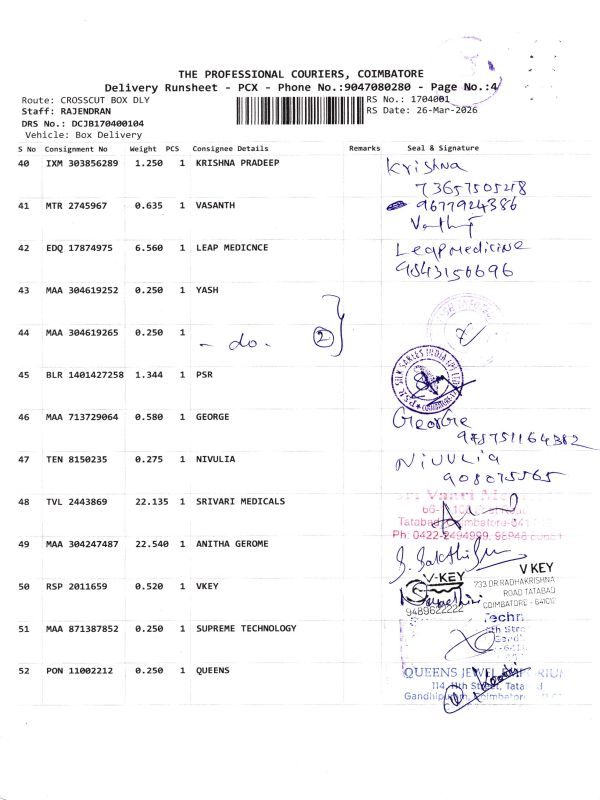 THE PROFESSIONAL COURIERS, COIMBATORE
Delivery Runsheet - PCX - Phone No.:9047080280 - Page No.:4
Route: CROSSCUT BOX DLY
Staff: RAJENDRAN
DRS No.: DCJB170400104
Vehicle: Box Delivery
RS No.: 1704001
RS Date: 26-Mar-2026
S No Consignment No Weight PCS Consignee Details Remarks Seal & Signature
40 IXM 303856289 1.250 1 KRISHNA PRADEEP Krishna
41 MTR 2745967 0.635 1 VASANTH 9677924386
42 EDQ 17874975 6.560 1 LEAP MEDICNCE Leap medicine
9843156696
43 MAA 304619252 0.250 1 YASH
44 MAA 304619265 0.250 1 - do. 2
45 BLR 1401427258 1.344 1 PSR
46 MAA 713729064 0.580 1 GEORGE GeorGe
47 TEN 8150235 0.275 1 NIVULIA NIVULIA
908075565
48 TVL 2443869 22.135 1 SRIVARI MEDICALS
Ph: 0422-2494999,
49 MAA 304247487 22.540 1 ANITHA GEROME
50 RSP 2011659 0.520 1 VKEY V-KEY V KEY
733 DR.RADHAKRISHNA
ROAD TATABAD
COIMBATORE - 641012
9489622222
51 MAA 871387852 0.250 1 SUPREME TECHNOLOGY
52 PON 11002212 0.250 1 QUEENS QUEENS
114,